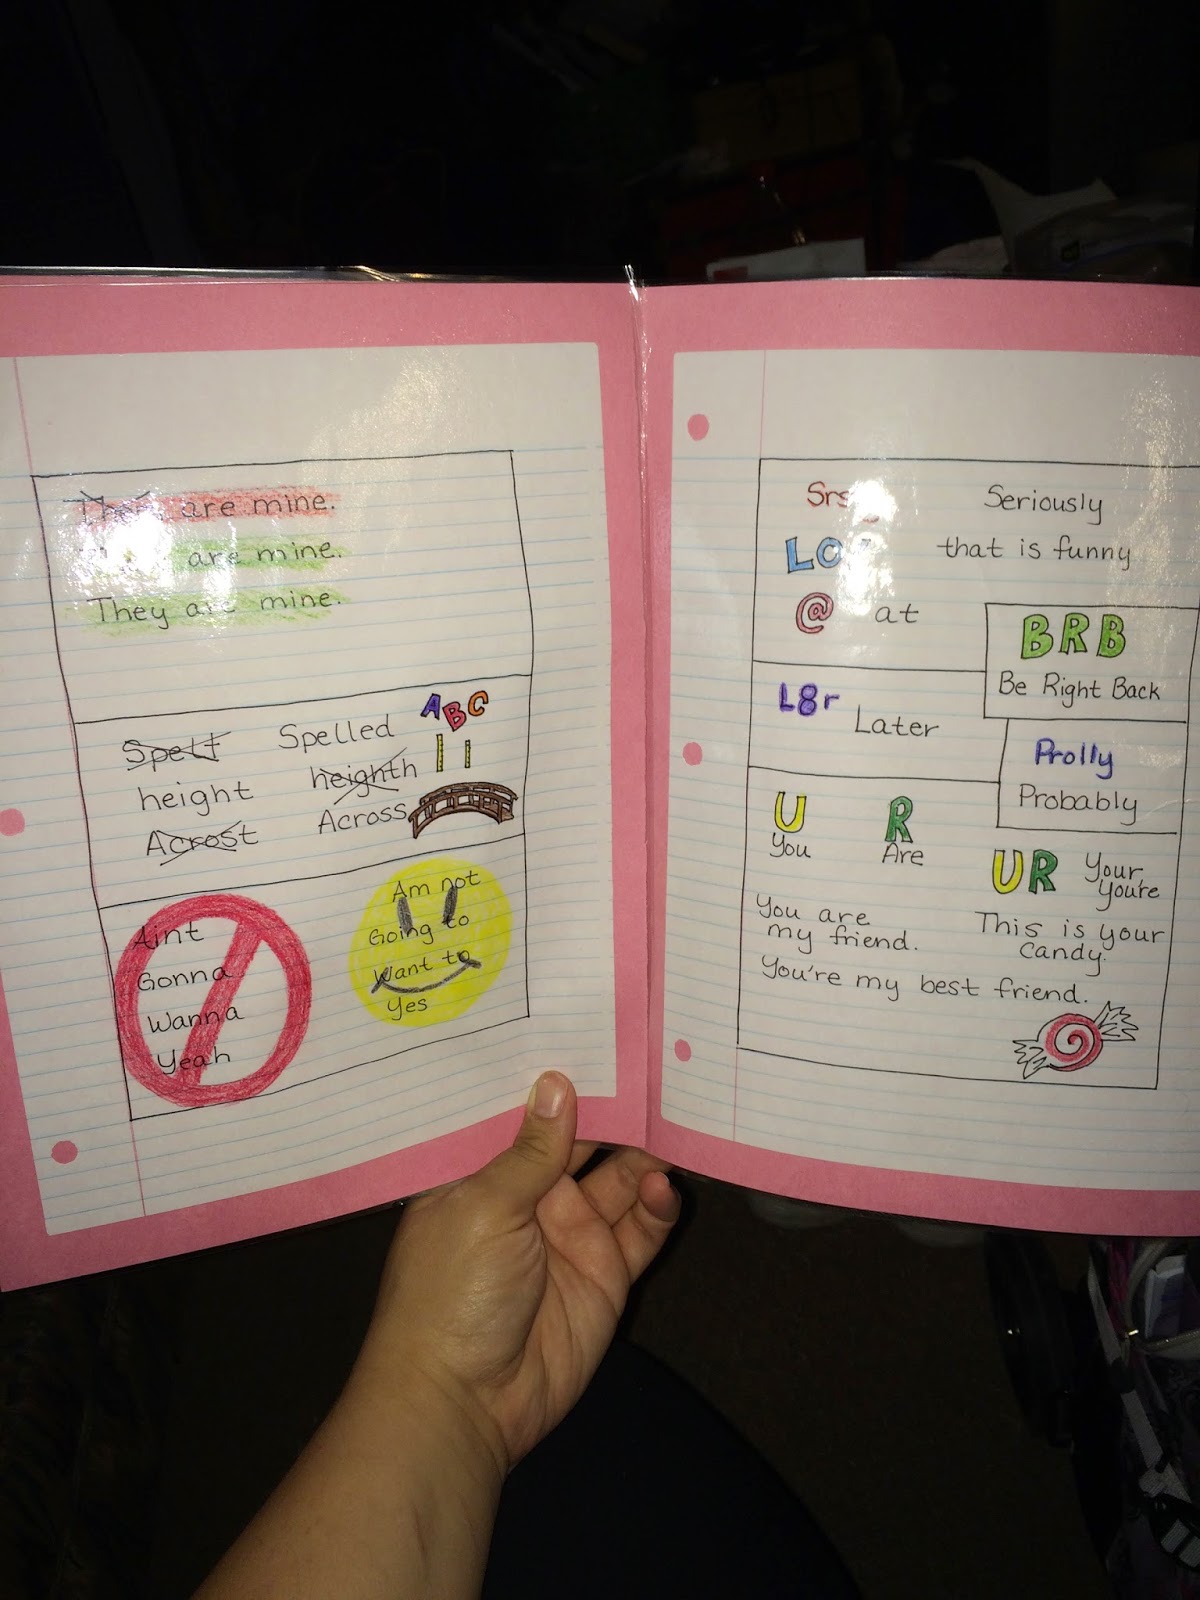 are mine.
are mine.
They are mine.
Spelt Spelled ABC
height heighth
Acrost Across
Aint
Gonna
Wanna
Yeah
Am not
Going to
Want to
Yes
Seriously
that is funny
@ at
BRB
Be Right Back
L8r Later
Prolly
Probably
U R
You Are
UR Your
You're
You are
my friend.
This is your
candy.
You're my best friend.